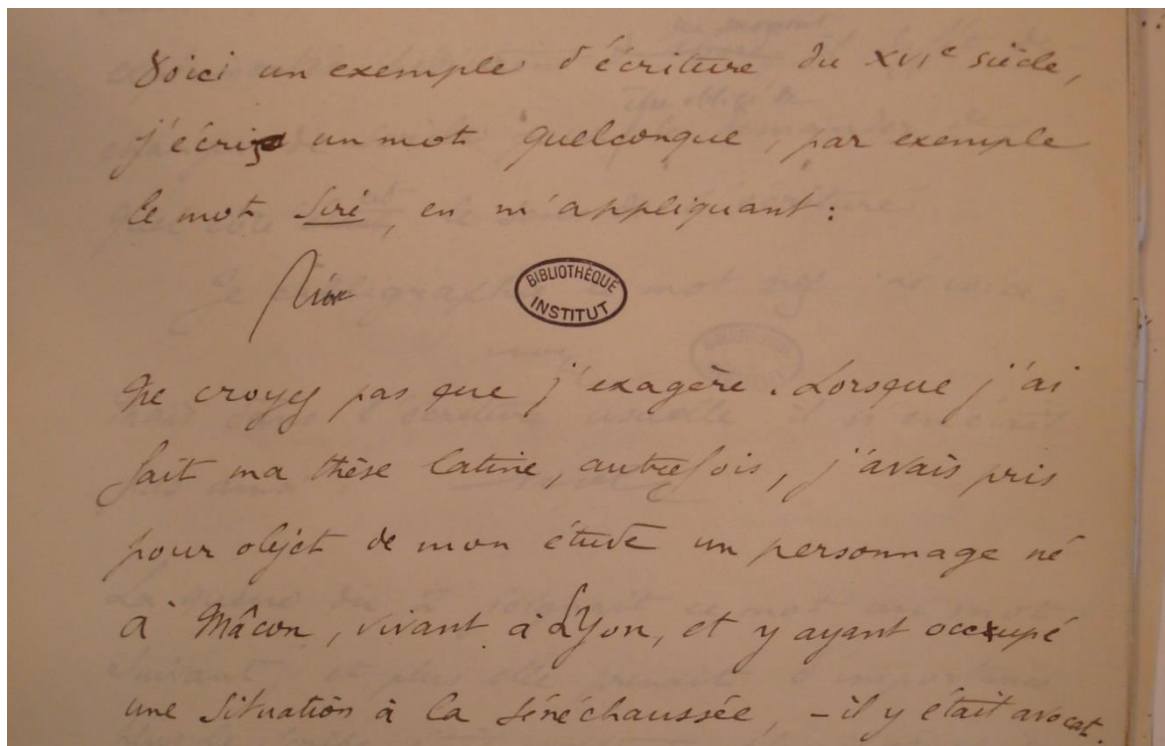 Voici un exemple d'écriture du XVIe siècle,
j'écris un mot quelconque, par exemple
le mot Siré, en m'appliquant :
BIBLIOTHÈQUE
INSTITUT
Ne croyez pas que j'exagère. Lorsque j'ai
fait ma thèse latine, autrefois, j'avais pris
pour objet de mon étude un personnage né
à Mâcon, vivant à Lyon, et y ayant occupé
une situation à la sénéchaussée, – il y était avocat.